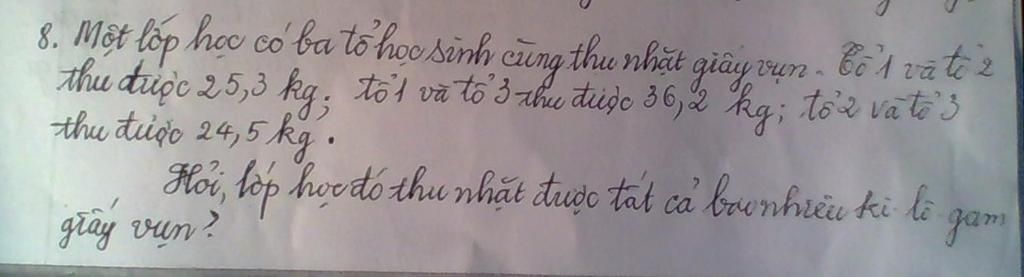 8. Một lớp học có ba tổ học sinh cùng thu nhặt giấy vụn. Tổ 1 và tổ 2
thu được 25,3 kg; tổ 1 và tổ 3 thu được 36,2 kg; tổ 2 và tổ 3
thu được 24,5 kg.
Hỏi, lớp học đó thu nhặt được tất cả bao nhiêu ki lô gam
giấy vụn?